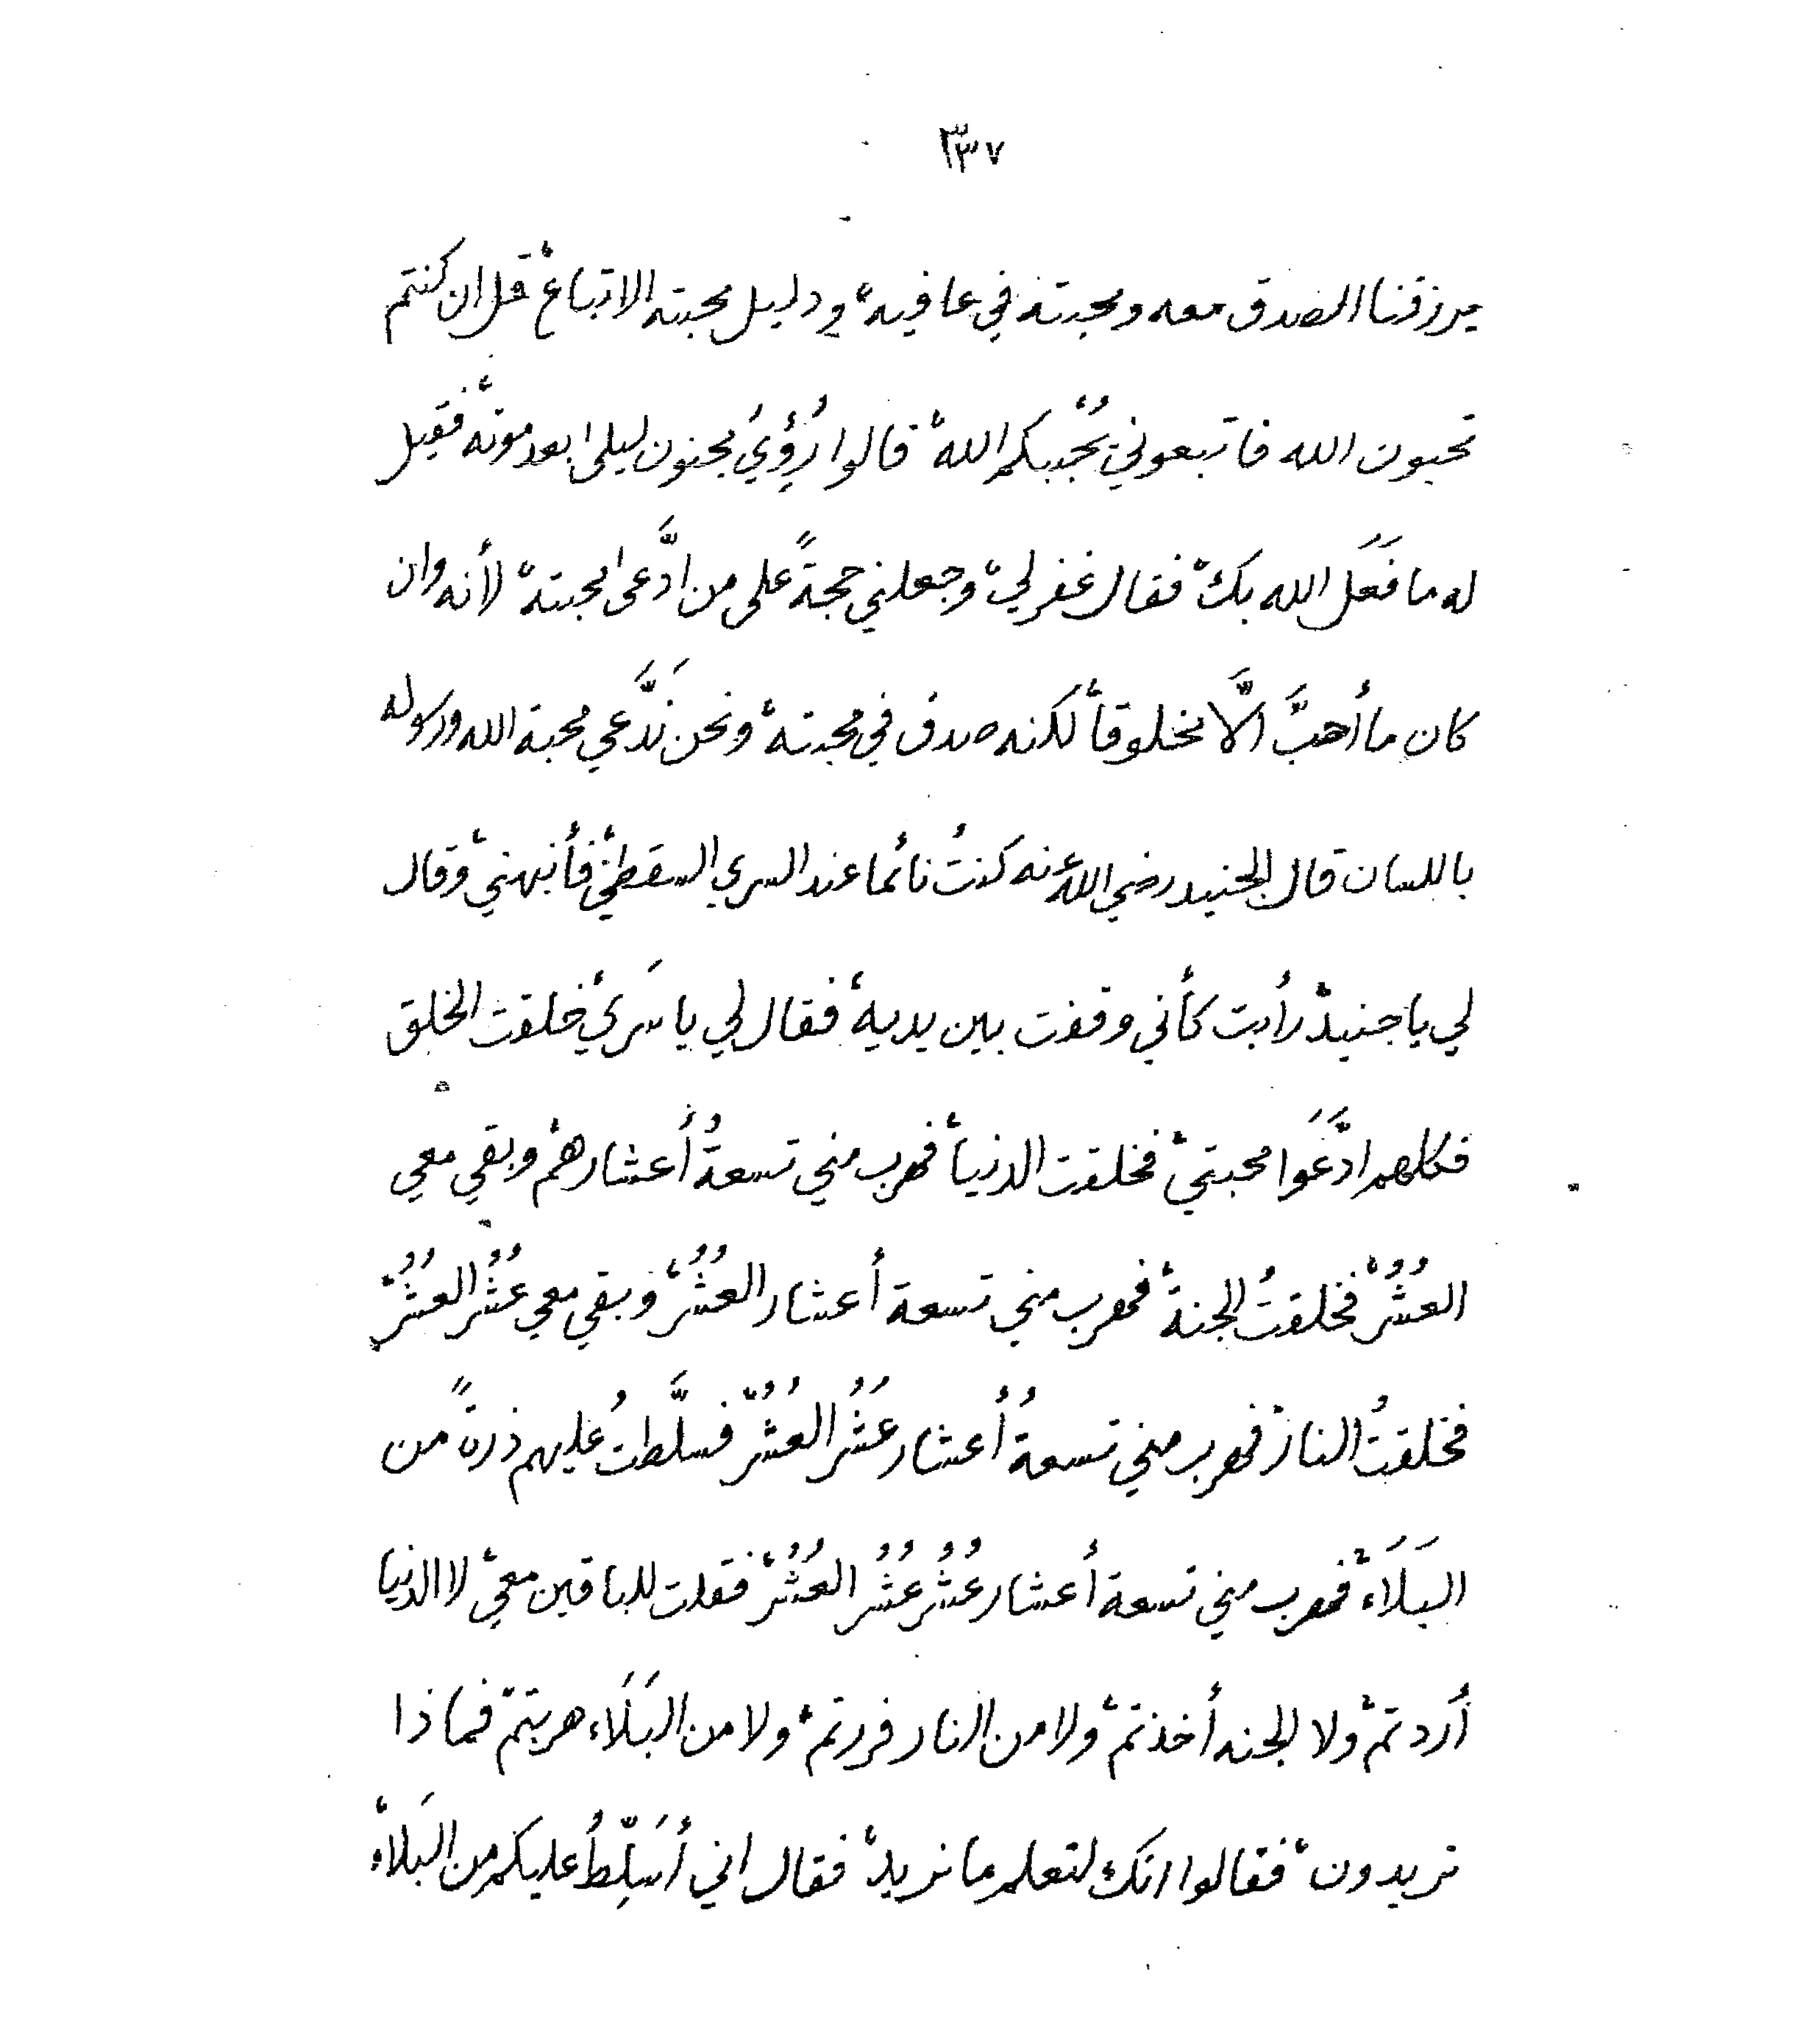 ٣٣٧
يرزقنا الصدق معه ومحبته في عافيه، ودليل محبته الاتباع، قل ان كنتم
تحبون الله فاتبعوني يُحْببكم الله، قالوا رُؤِيُ مجنون ليلى بعد موته، فقيل
له ما فَعَل الله بك، فقال غفر لي، وجعلني حجةً على من ادَّعى محبته، لأنه وان
كان ما أحبَّ الَّا مخلوقاً، لكنه صدق في محبته، ونحن نَدَّعي محبة الله ورسوله
باللسان قال الجنيد رضي الله عنه كنتُ نائما عند السري السقطي، فأنبهني، وقال
لي يا جنيد، رأيت كأني وقفت بين يديه، فقال لي يا سَري، خلقت الخلق
فكلهم ادَّعَوا محبتي، فخلقت الدنيا، فهرب مني تسعةُ أعشارهم، وبقي معي
العُشُر، فخلقتُ الجنة، فهرب مني تسعة أعشار العُشُر، وبقي معي عُشُر العُشُر،
فخلقتُ النار، فهرب مني تسعةُ أعشار عُشُر العُشُر، فسلَّطتُ عليهم ذرةً من
البَلَاء، فهرب مني تسعة أعشار عُشُر عُشُر العُشُر، فقلت للباقين معي، لا الدنيا
أردتم، ولا الجنه أخذتم، ولا من النار فررتم، ولا من البَلَاء هربتم، فماذا
تريدون، فقالوا انك لتعلم ما نريد، فقال اني أُسَلِّطُ عليكم من البَلاء،